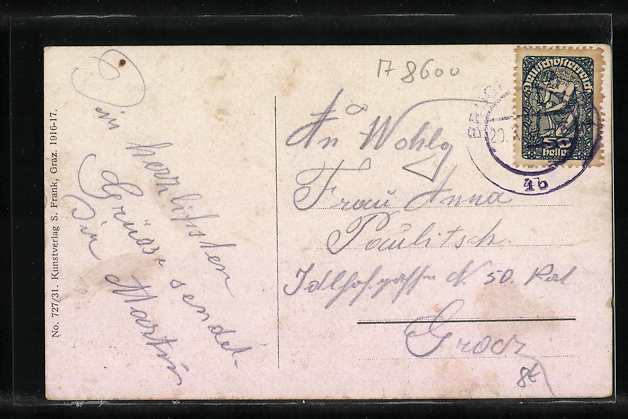 No. 727/31. Kunstverlag S. Frank, Graz. 1916-17.
Die herzlichsten
Grüsse sendet
Dir Martin
A 8600
Deutschösterreich
50
Heller
20.
4b
An Wohlg
Frau Anna
Paulitsch
Idlhofgasse N. 50.
Graz
8€